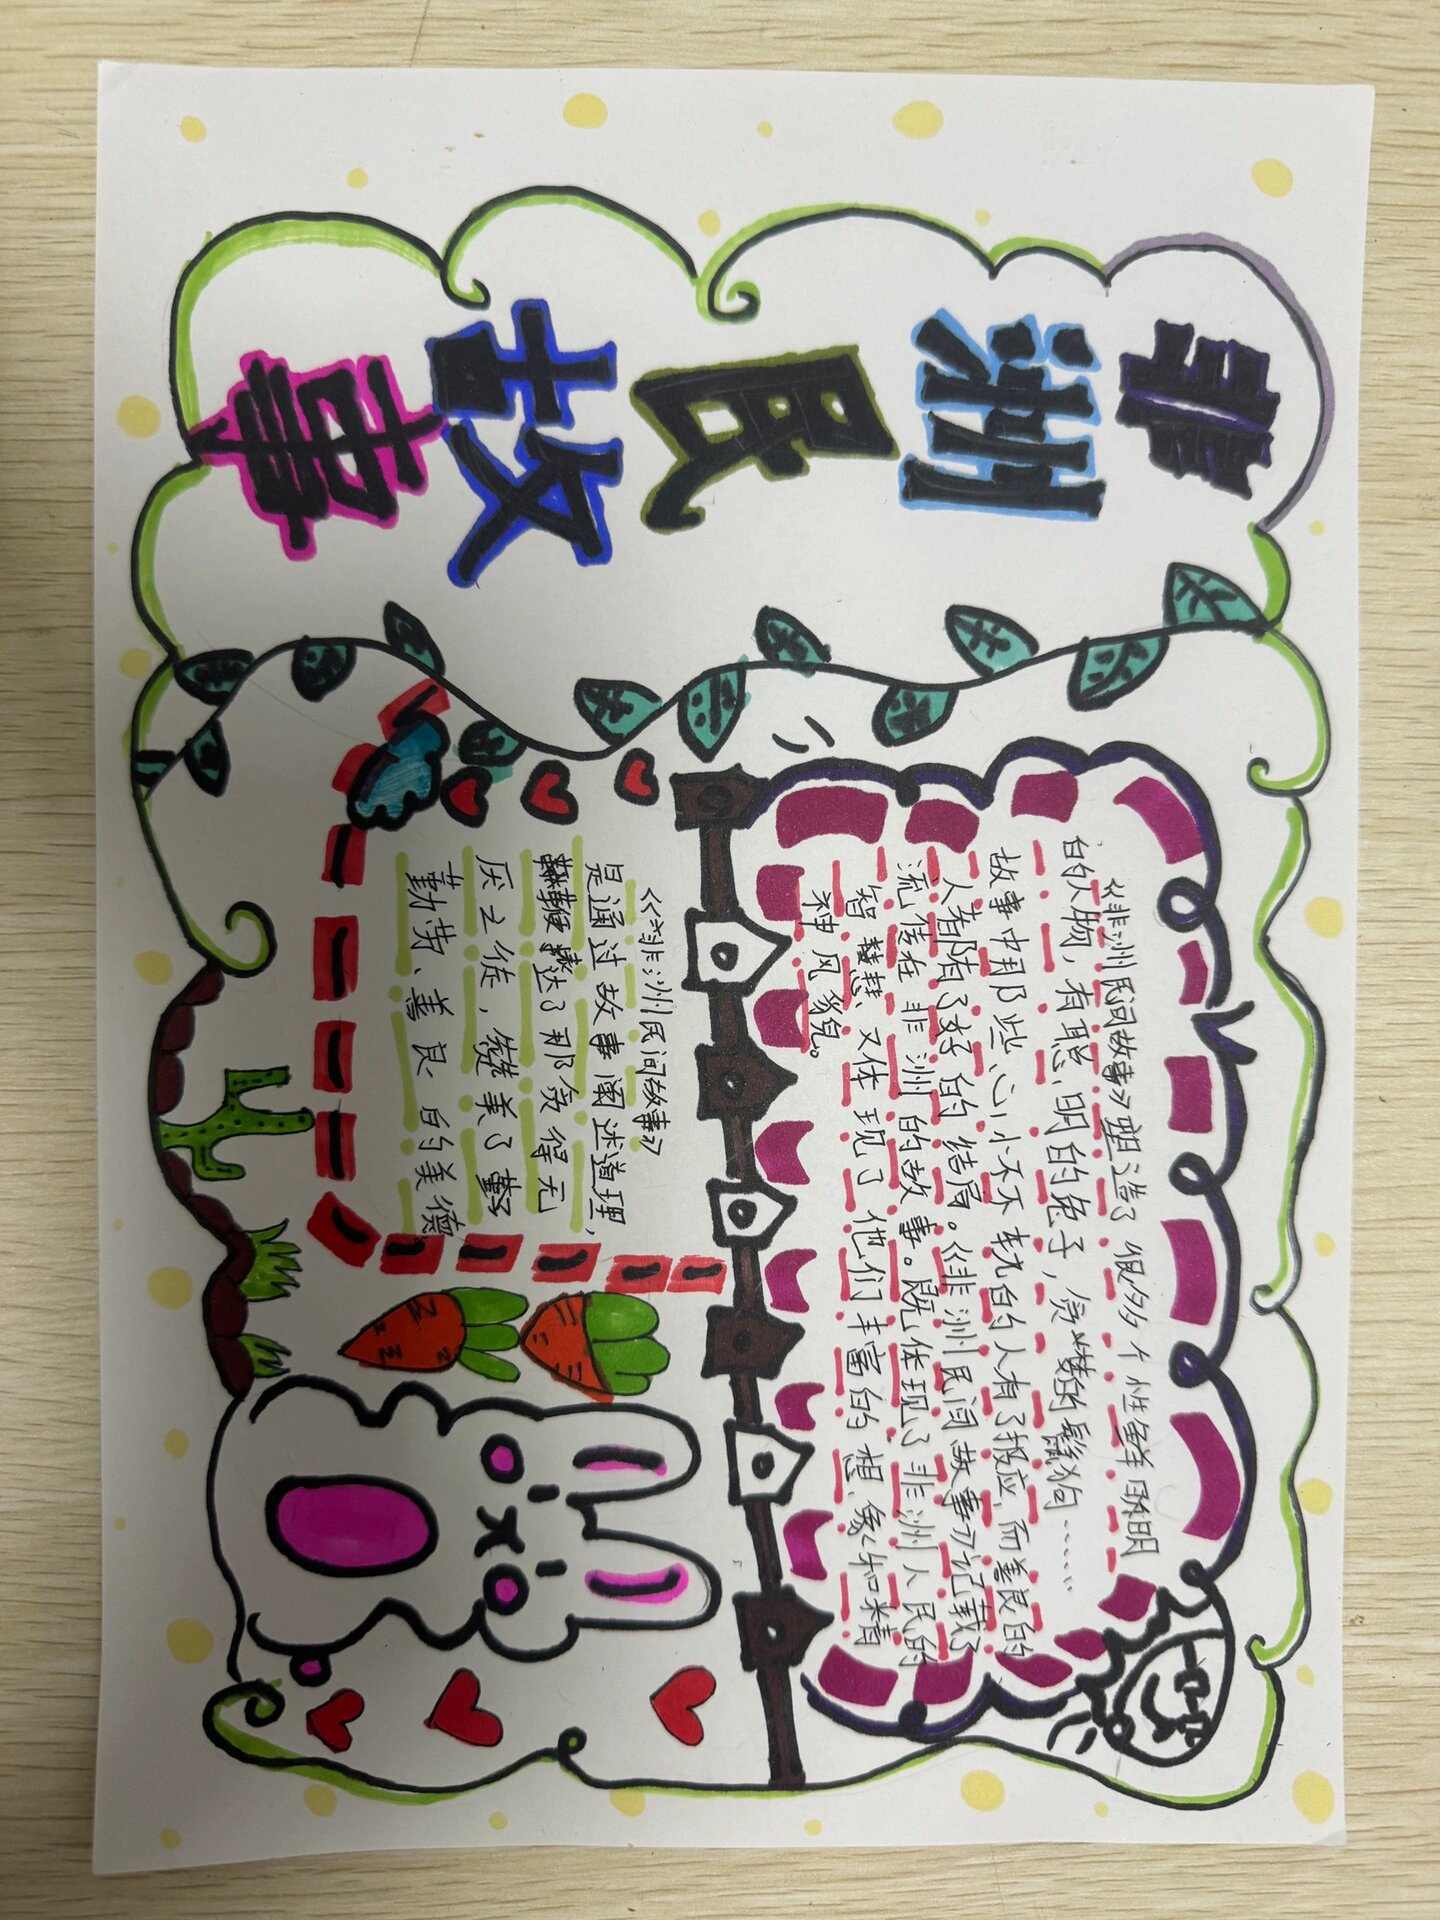 非洲民故事
《非洲民间故事》塑造了很多个性鲜明
的人物，有聪明的兔子，贪婪的鬣狗……
故事中那些心怀不轨的人有了报应，而善良的
人都有了好的结局。《非洲民间故事》记载了
流传在非洲的故事。既体现了非洲人民的
智慧、又体现了他们丰富的想象和精
神风貌。
《非洲民间故事》
是通过故事阐述道理，
鞭挞了那贪得无
厌之徒，赞美了勤
勤劳、善良、的美德